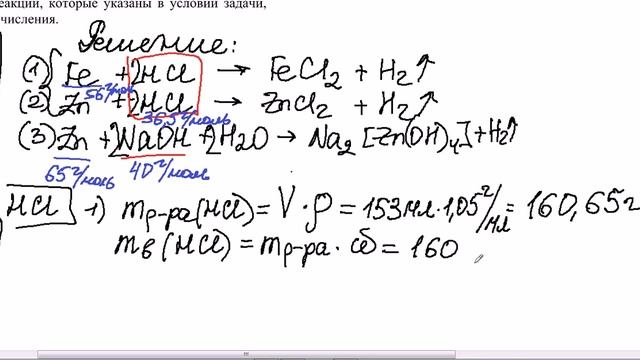 еакции, которые указаны в условии задачи,
числения.
Решение:
(1) Fe + 2HCl → FeCl₂ + H₂↑
56 г/моль
(2) Zn + 2HCl → ZnCl₂ + H₂↑
36,5 г/моль
(3) Zn + 2NaOH + 2H₂O → Na₂[Zn(OH)₄] + H₂↑
65 г/моль 40 г/моль
HCl 1) mр-ра(HCl) = V·ρ = 153 мл · 1,05 г/мл = 160,65 г
mв (HCl) = mр-ра · ω = 160